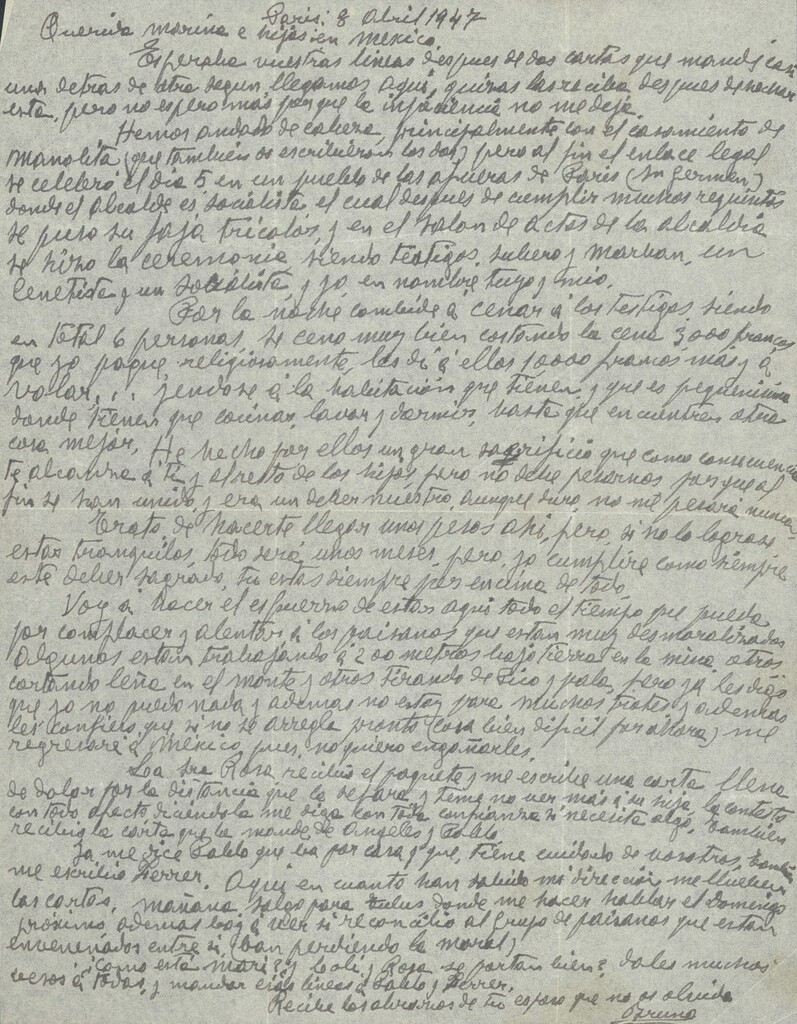 Paris: 8 Abril 1947
Querida marina e hijos en mexico
Esperaba vuestras lineas despues de dos cartas que mandé casi
una detras de otra segun llegamos aquí, quizas las reciba despues de hechar
esta, pero no espero mas porque la impaciencia no me deja.
Hemos andado de cabeza, principalmente con el casamiento de
manolita (que tambien os escribieron los dos) pero al fin el enlace legal
se celebró el dia 5 en un pueblo de las afueras de Paris (Sn German)
donde el alcalde es socialista el cual despues de cumplir muchos requisitos
se puso su faja tricolor, y en el salon de actos de la alcaldia
se hizo la ceremonia siendo testigos, Subero y Marban, un
Cenetista y un socialista y yo en nombre tuyo y mio.
Por la noche combidé á cenar á los testigos siendo
en total 6 personas, se ceno muy bien costando la cena 3000 francos
que yo pague religiosamente, les di á ellos 10000 francos mas y á
volar,... yendose á la habitación que tienen y que es pequeñisima
donde tienen que cocinar, lavar y dormir, hasta que encuentren otra
cosa mejor. He hecho por ellos un gran sacrificio que como consecuencia
te alcanza á ti y al resto de los hijos, pero no debe pesarnos porque al
fin se han unido y era un deber nuestro, aunque duro, no me pesará nunca.
Trato de hacerte llegar unos pesos ahi, pero, si no lo lograse
estar tranquilos, todo será unos meses, pero, yo cumpliré como siempre
este deber sagrado, tu estas siempre por encima de todo.
Voy á hacer el esfuerzo de estar aqui todo el tiempo que pueda
por complacer y alentar á los paisanos que estan muy desmoralizados
algunos estan trabajando á 200 metros bajo tierra en la mina, otros
cortando leña en el monte y otros tirando de pico y pala, pero ya les digo
que yo no puedo nada y ademas no estoy para muchos trotes y ademas
les confieso que si no se arregla pronto (cosa bien dificil por ahora) me
regresaré á México, pues, no quiero engañarles.
La Sra Rosa, recibio el paquete y me escribe una carta llena
de dolor por la distancia que la separa y teme no ver mas á su hija, la contesto
con todo afecto diciendola me diga con toda confianza si necesita algo, tambien
recibio la carta que la mande de Angeles y Pablo.
Ya me dice Pablo que ba por casa y que, tiene cuidado de vosotros, tambien
me escribio Ferrer. Aqui en cuanto han sabido mi dirección me llueven
las cartas, mañana salgo para donde me hacer hablar el Domingo
próximo, ademas boy á ver si reconcilio al grupo de paisanos que estan
envenenados entre si (ban perdiendo la moral)
¿Como está Mari? y Loli y Rosa se portan bien? dales muchos
vesos á todas, y mandar esas lineas á Pablo y Ferrer.
Recibe los abrazos de tu esposo que no os olvida
Bruno